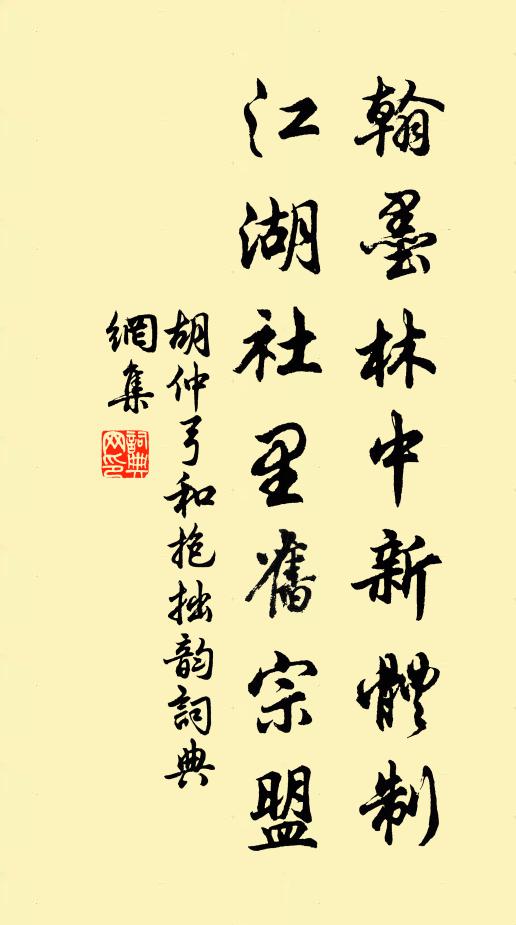 翰墨林中新體制
江湖社里舊宗盟
胡仲弓和抱拙韵詞典
網集
詞典网印